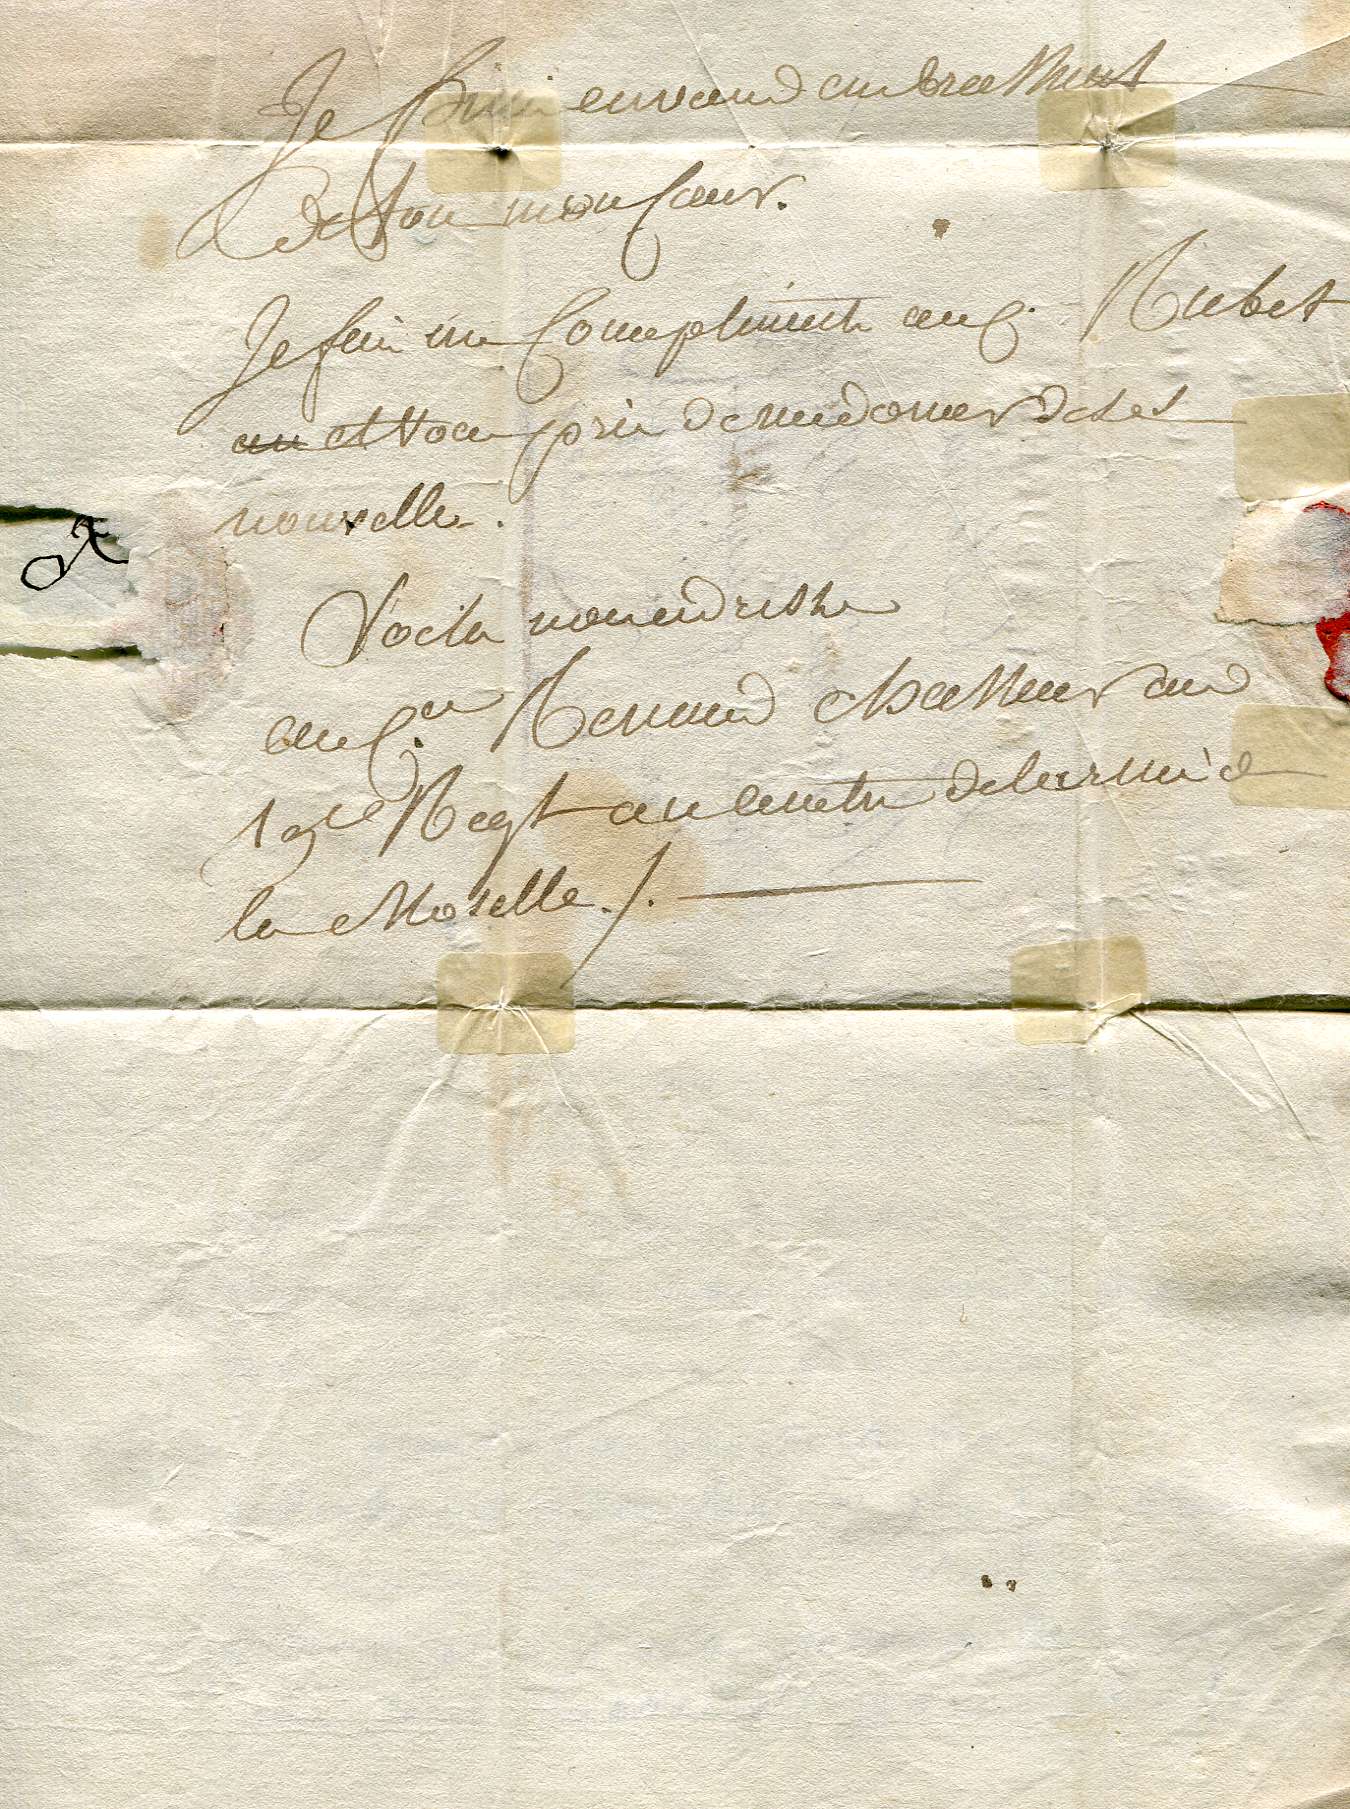 Je fini envous embrassant
de tou mon cœur.
Je fai un compliment au c. Rubet
au et vou prie de me doner de ses
nouvelle.
Voila mon adresse
au c.en Renaud chasseur aud
19me Regt au centre de larmé d
la Moselle ./.